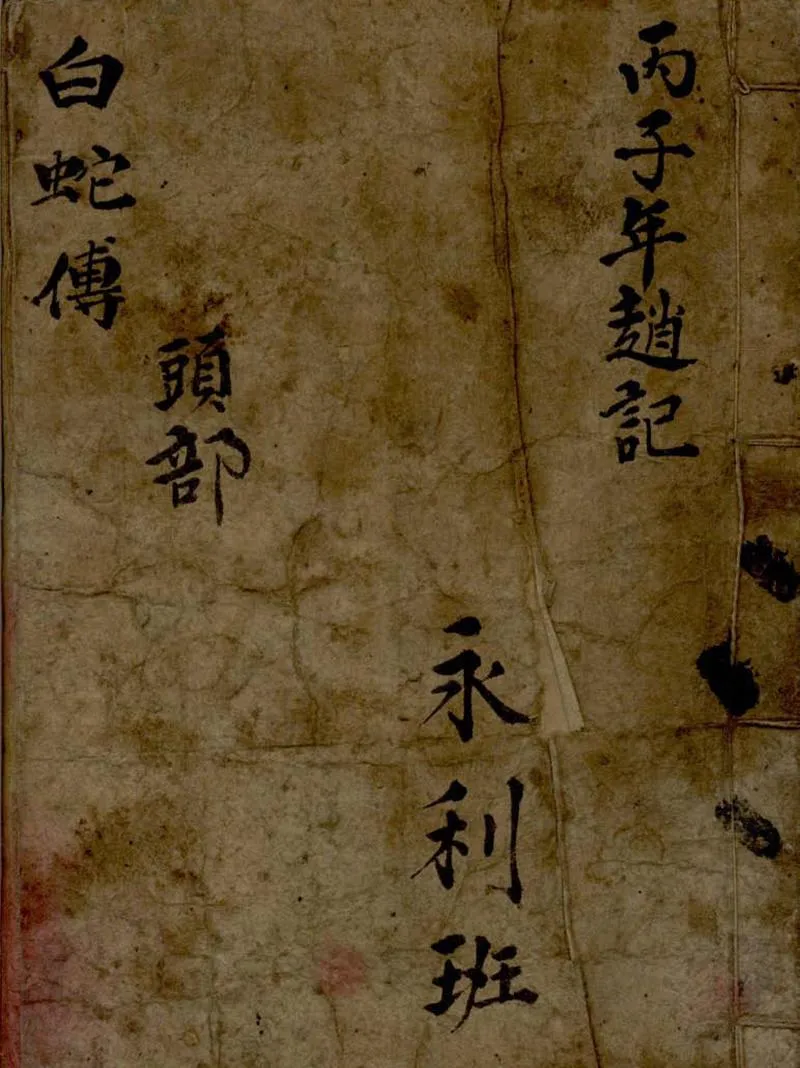 丙子年趙記
永利班
白蛇傳
頭部